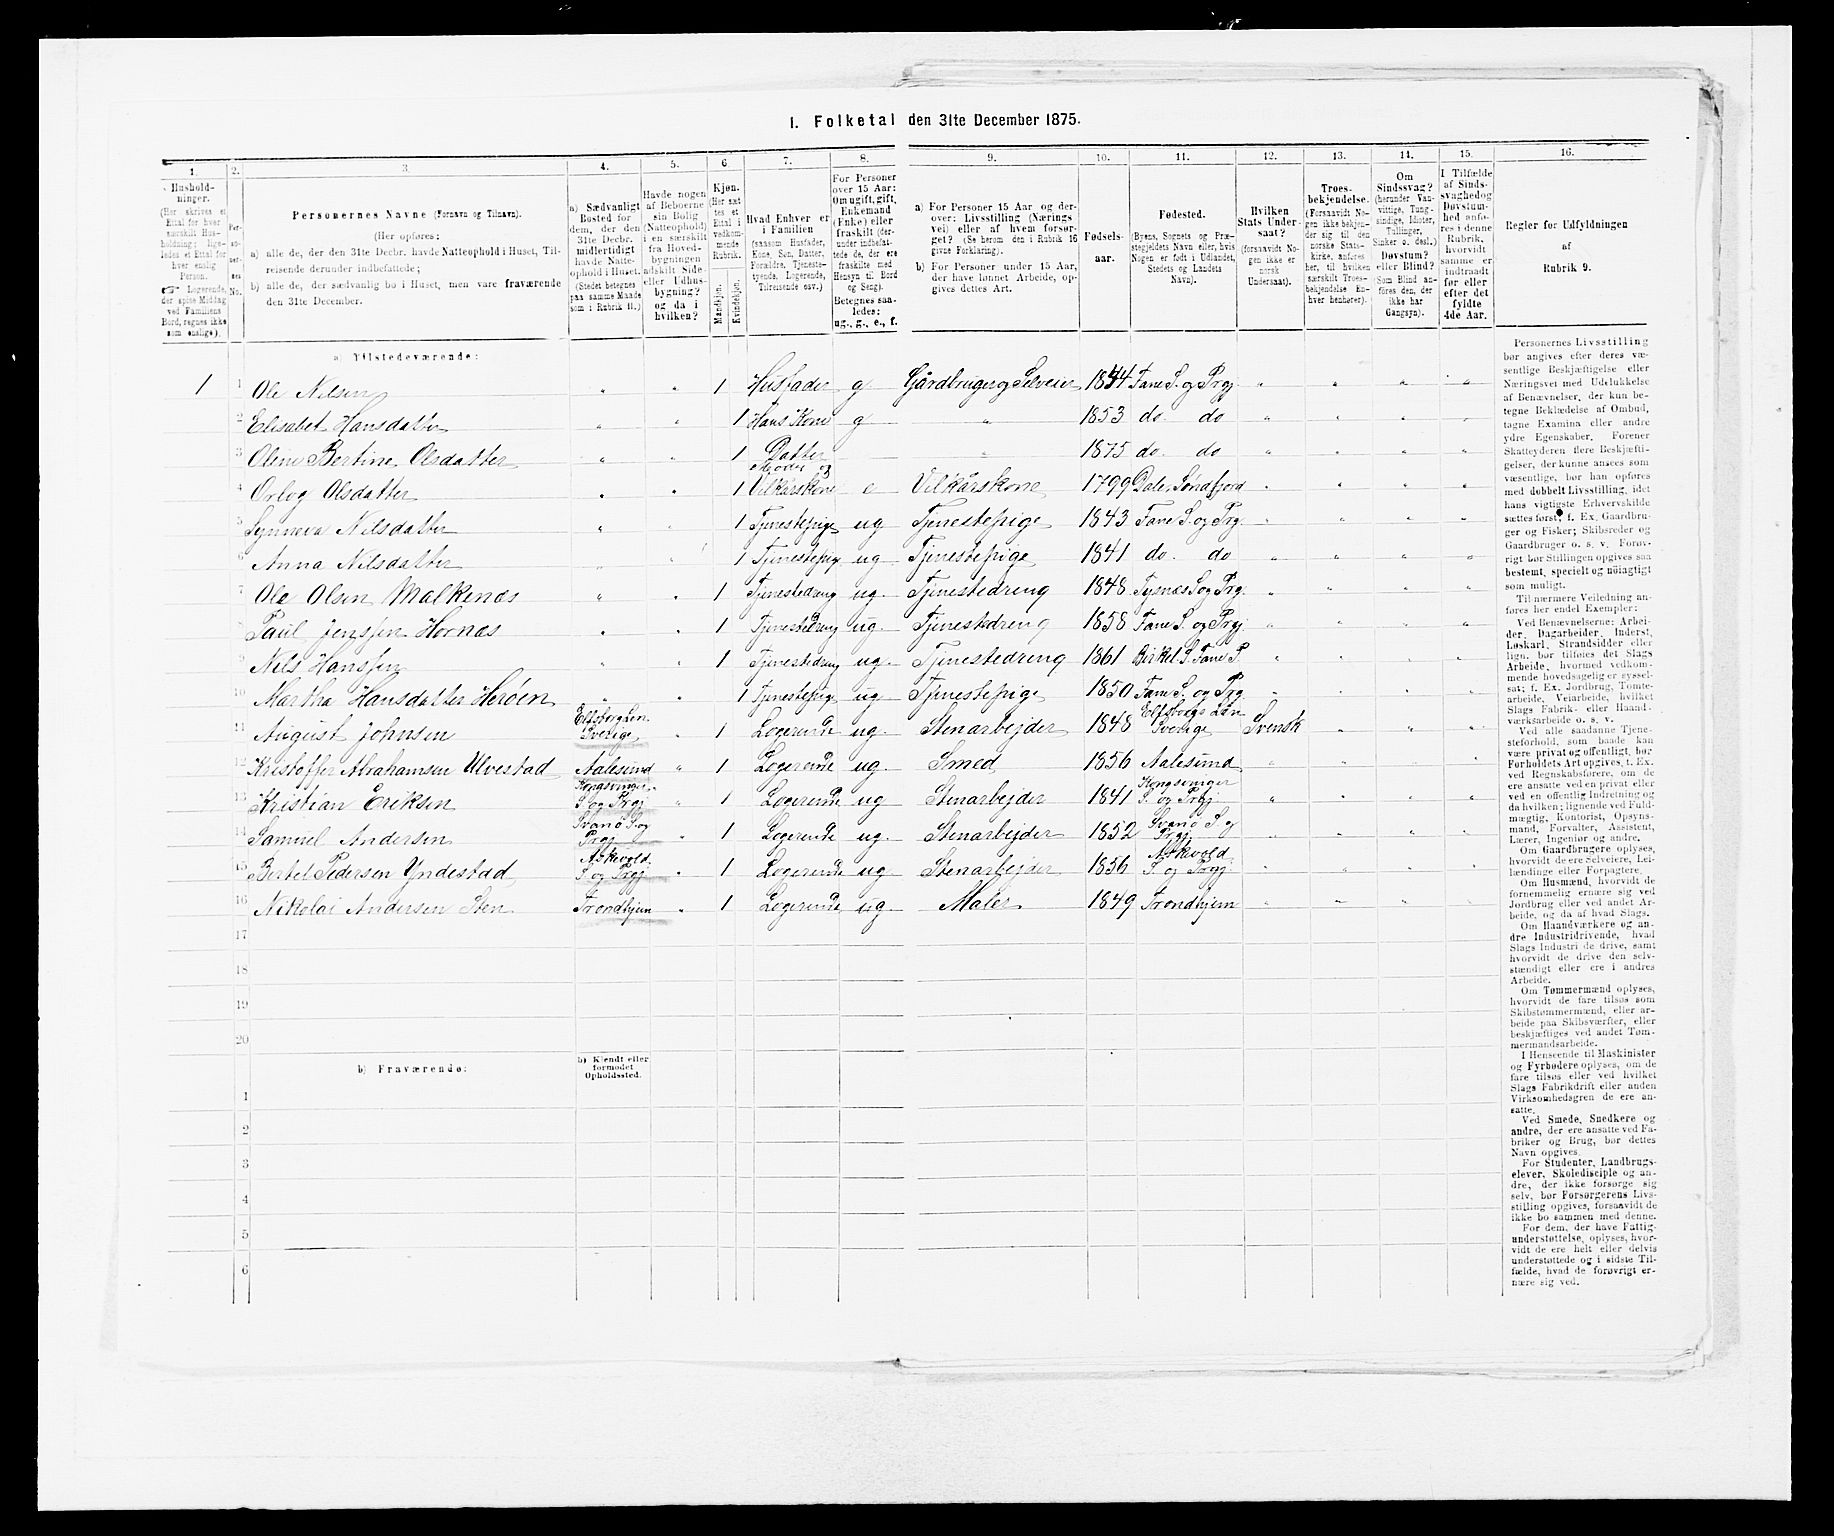 1. Folketal den 31te December 1875.
1. 2. 3. 4. 5. 6. 7. 8. 9. 10. 11. 12. 13. 14. 15. 16.
Husholdninger. (Her skrives et Ettal for hver særskilt Husholdning; ligeledes et Ettal for hver enslig Person. ☞ Logerende, der spise Middag ved Familiens Bord, regnes ikke som enslige).
Personernes No.
Personernes Navne (Fornavn og Tilnavn).
(Her opføres:
a) alle de, der den 31te Decbr. havde Natteophold i Huset, Tilreisende derunder indbefattede;
b) alle de, der sædvanlig bo i Huset, men vare fraværende den 31te December.
a) Sædvanligt Bosted for dem, der den 31te Decbr. midlertidigt havde Natteophold i Huset. (Stedet betegnes paa samme Maade som i Rubrik 11.)
Havde nogen af Beboerne sin Bolig (Natteophold) i en særskilt fra Hovedbygningen adskilt Side- eller Udhusbygning? og da i hvilken?
Kjøn. (Her sættes et Ettal i vedkommende Rubrik.
Mandkjøn. Kvindekjøn.
Hvad Enhver er i Familien (saasom Husfader, Kone, Søn, Datter, Forældre, Tjenestetyende, Logerende, Tilreisende osv.)
For Personer over 15 Aar: Om ugift, gift, Enkemand (Enke) eller fraskilt (derunder indbefattede de, der ere fraskilte med Hensyn til Bord og Seng). Betegnes saaledes: ug., g., e., f.
a) For Personer over 15 Aar og derover: Livsstilling (Næringsvei) eller af hvem forsørget? (Se herom den i Rubrik 16 givne Forklaring).
b) For Personer under 15 Aar, der have lønnet Arbeide, opgives dettes Art.
Fødselsaar.
Fødested. (Byens, Sognets og Præstegjeldets Navn eller, hvis Nogen er født i Udlandet, Stedets og Landets Navn).
Hvilken Stats Undersaat? (forsaavidt Nogen ikke er norsk Undersaat).
Troesbekjendelse. (Forsaavidt Nogen ikke bekjender sig til den norske Statskirke, anføres her, til hvilken særskilt Troesbekjendelse Enhver henhører).
Om Sindssvag? (herunder Vanvittige, Tungsindige, Idioter, Tullinger, Sinker o. desl.) Døvstum? eller Blind? (Som Blind anføres den, der ikke har Gangsyn).
I Tilfælde af Sindssvaghed og Døvstumhed anføres i denne Rubrik, hvorvidt samme er indtraadt før eller efter det fyldte 4de Aar.
Regler for Udfyldningen af Rubrik 9.
a) Tilstedeværende:
1 1 Ole Nilsen " " 1 Husfader g Gårdbruger og Selveier 1844 Fane S. og Prgj " " " "
2 Elisabet Hansdatter " " 1 Hans Kone g " 1853 do. do " " " "
3 Oline Bertine Olsdatter " " 1 Datter " 1875 do. do " " " "
4 Orlog Olsdatter " " 1 Moder og Vilkårskone e Vilkårskone 1799 Dale, Søndfjord " " " "
5 Synneva Nilsdatter " " 1 Tjenestepige ug Tjenestepige 1843 Fane S. og Prg. " " " "
6 Anna Nilsdatter " " 1 Tjenestepig ug Tjenestepige 1841 do. do " " " "
7 Ole Olsen Malkenæs " " 1 Tjenestedreng ug. Tjenestedreng 1848 Tysnæs S og Prg. " " " "
8 Paul Jenssen Hornæs " " 1 Tjenestedreng ug. Tjenestedreng 1858 Fane S. og Prgj. " " " "
9 Nils Hanssen " " 1 Tjenestedreng ug. Tjenestedreng 1861 Birkel. S. Fane P. " " " "
10 Martha Hansdatter Herøen " " 1 Tjenestepige ug Tjenestepige 1850 Fane S. og Prg. " " " "
11 August Johnsen Elfsborg Len Sverige " 1 Logerende ug. Stenarbejder 1848 Elfsborgs Län Sverige Svensk " " "
12 Kristoffer Abrahamsen Ulvestad Aalesund " 1 Logerende ug. Smed 1856 Aalesund " " " "
13 Kristian Eriksen Kongsvinger S. og Prgj " 1 Logerende ug Stenarbejder 1841 Kongsvinger S. og Prgj. " " " "
14 Samuel Andersen Svanø S. og Prgj " 1 Logerende ug. Stenarbejder 1852 Svanø S og Prgj. " " " "
15 Bertel Pedersen Yndestad Askevold S. og Prgj. " 1 Logerende ug Stenarbejder 1856 Askevold S. og Prgj. " " " "
16 Nikolai Andersen Sten Trondhjem " 1 Logerende ug. Maler 1849 Trondhjem " " " "
17
18
19
20
b) Fraværende: b) Kjendt eller formodet Opholdssted.
1
2
3
4
5
6
Personernes Livsstilling
bør angives efter deres væsentlige
Beskjæftigelse eller
Næringsvei med Udelukkelse
af Benævnelser, der kun betegne
Beklædelse af Ombud,
tagne Examina eller andre
ydre Egenskaber. Forener
Skatteyderen flere Beskjæftigelser,
der kunne ansees som
væsentlige, bør han opføres
med dobbelt Livsstilling, idet
hans vigtigste Erhvervskilde
sættes først; f. Ex. Gaardbruger
og Fisker; Skibsreder og
Gaardbruger o. s. v. Forøvrigt
bør Stillingen opgives saa
bestemt, specielt og nøiagtigt
som muligt.
Til nærmere Veiledning anføres
her endel Exempler:
Ved Benævnelserne: Arbeider,
Dagarbeider, Inderst,
Løskarl, Strandsidder eller
lign. bør tilføres det Slags
Arbeide, hvormed vedkommende
hovedsagelig er sysselsat;
f. Ex. Jordbrug, Tomtearbeide,
Veiarbeide, hvilket
Slags Fabrik- eller Haandværksarbeide
o. s. v.
Ved alle saadanne Tjenesteforhold,
som baade kan
være privat og offentligt, bør
Forholdets Art opgives, t. Ex.
ved Regnskabsførere, om de
ere ansatte ved en privat eller
ved en offentlig Indretning og
da hvilken; lignende ved Fuldmægtig,
Kontorist, Opsynsmand,
Forvalter, Assistent,
Lærer, Ingeniør og andre.
Om Gaardbrugere oplyses,
hvorvidt de ere Selveiere, Leilændinge
eller Forpagtere.
Om Husmænd, hvorvidt de
fornemmelig ernære sig ved
Jordbrug eller ved andet Arbeide,
og da af hvad Slags.
Om Haandværkere og andre
Industridrivende, hvad
Slags Industri de drive, samt
hvorvidt de drive den selvstændigt
eller ere i andres
Arbeide.
Om Tømmermænd oplyses,
hvorvidt de fare tilsøs som
Skibstømmermænd, eller arbeide
paa Skibsværfter, eller
beskjæftiges ved andet Tømmermandsarbeide.
I Henseende til Maskinister
og Fyrbødere oplyses, om de
fare tilsøs eller ved hvilket
Slags Fabrikdrift eller anden
Virksomhedsgren de ere ansatte.
Ved Smede, Snedkere og
andre, der ere ansatte ved Fabriker
og Brug, bør dettes
Navn opgives.
For Studenter, Landbrugselever,
Skoledisciple og andre,
der ikke forsørge sig
selv, bør Forsørgerens Livsstilling
opgives, forsaavidt de
ikke bo sammen med denne.
For dem, der have Fattigunderstøttelse,
oplyses, hvorvidt
de ere helt eller delvis
understøttede og i sidste Tilfælde,
hvad de forøvrigt ernære
sig ved.